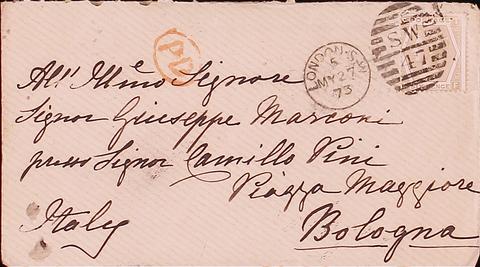 PD
LONDON·S.W
5
MY 27
73
S.W.
47
All' Illmo Signore
Signor Giuseppe Marconi
presso Signor Camillo Pini
Piazza Maggiore
Italy
Bologna